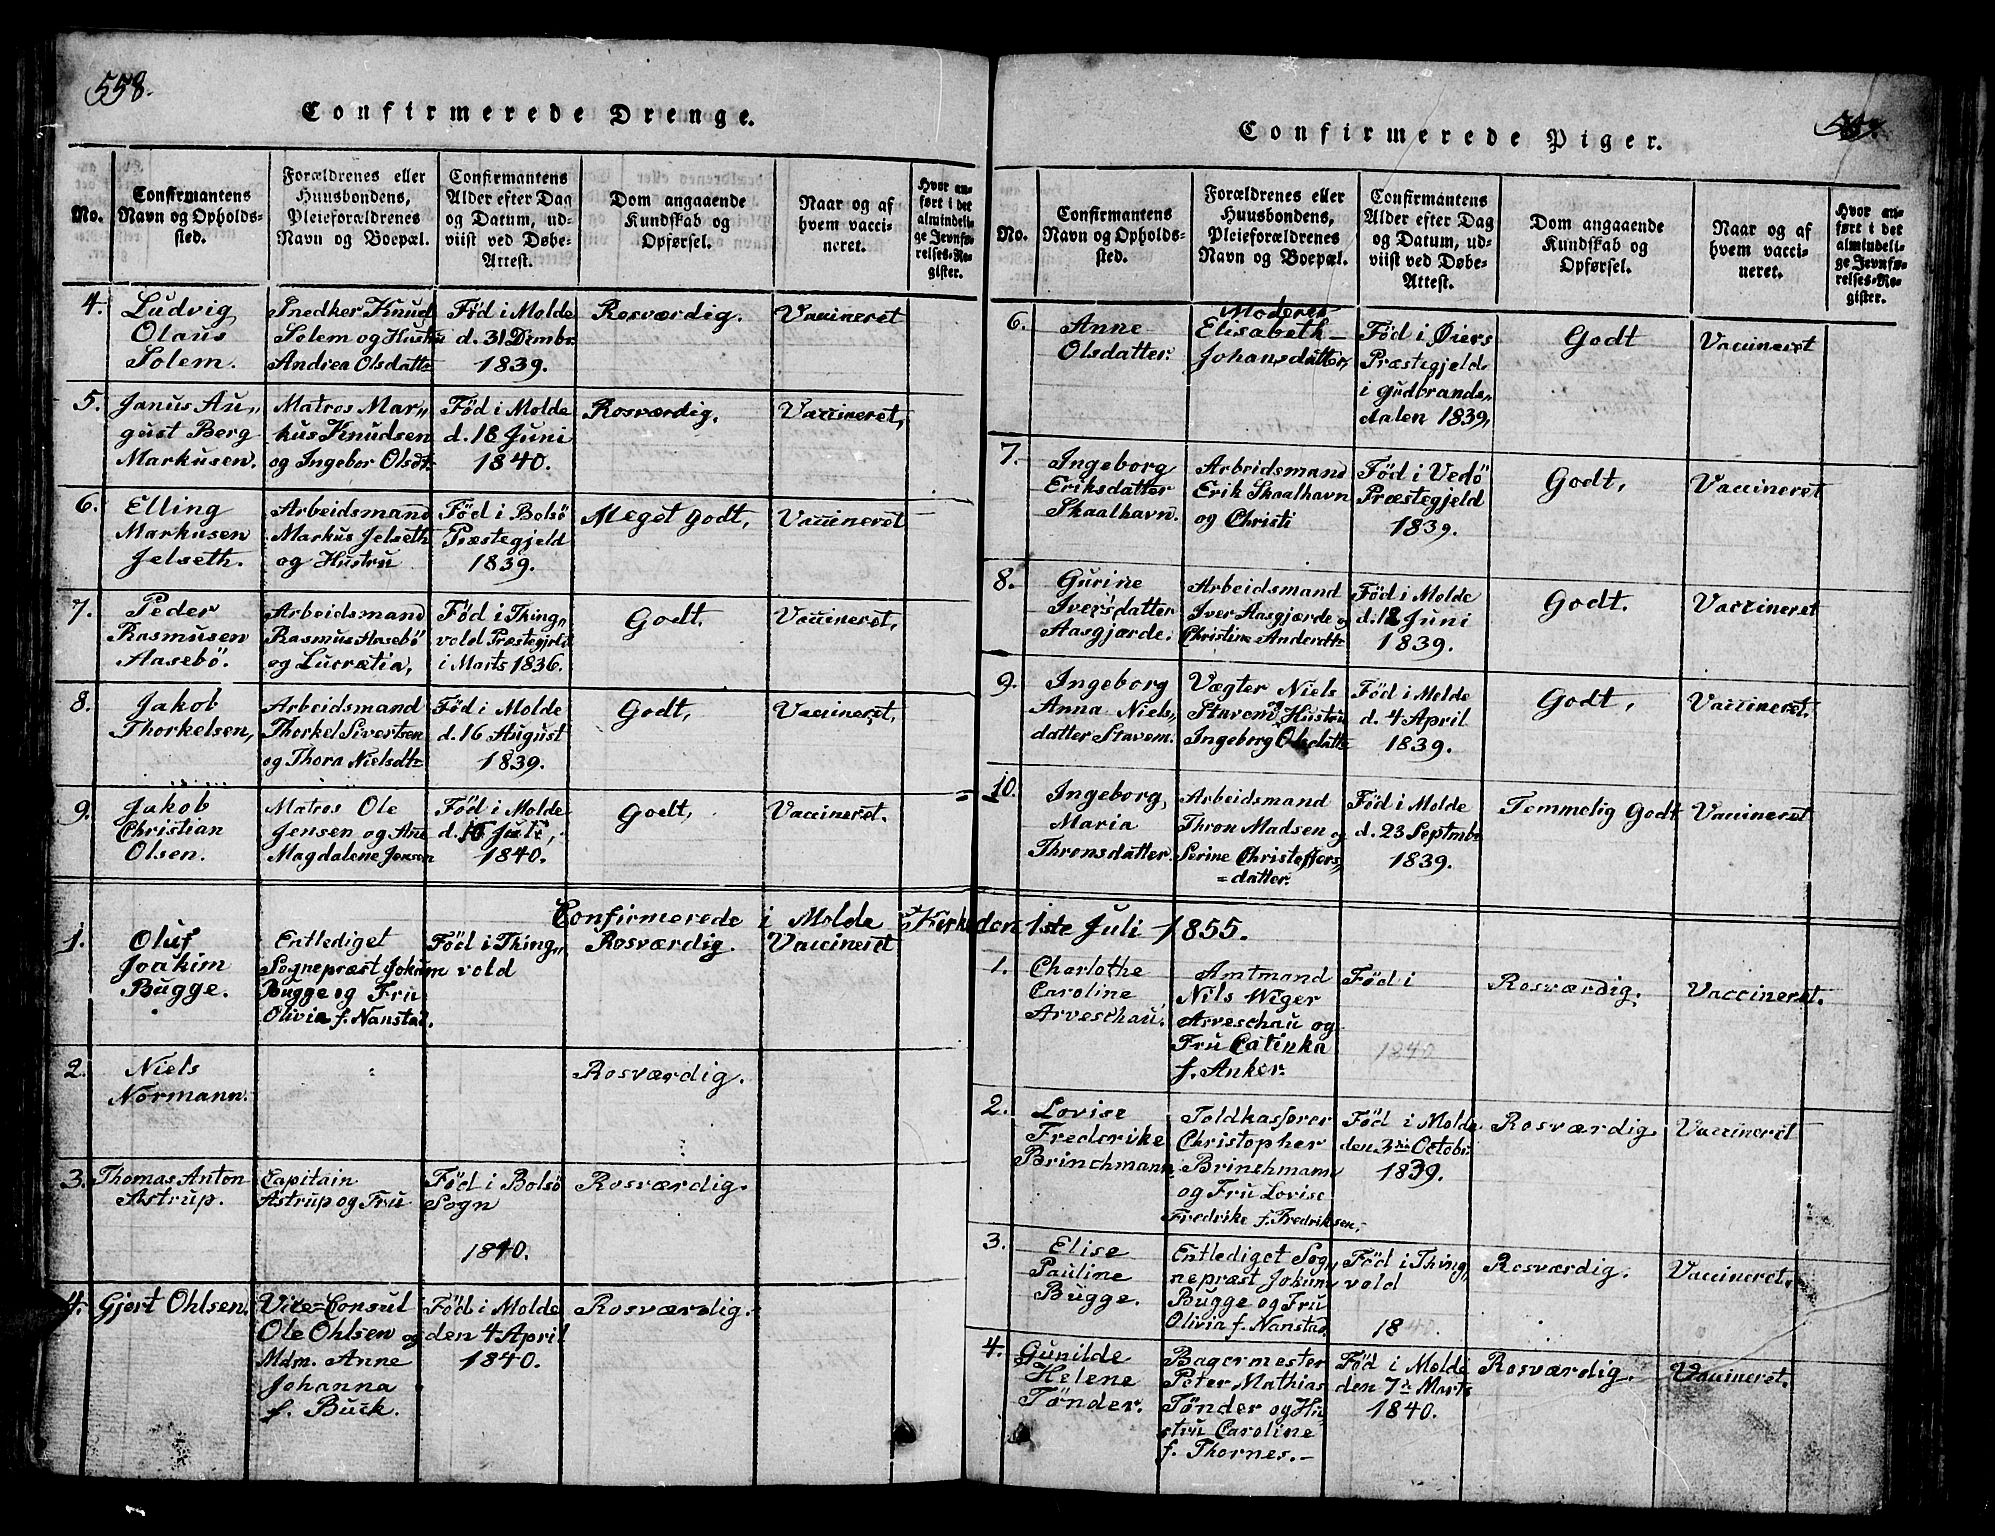 558.
Confirmerede Drenge.
No.
Confirmantens
Navn og Opholds-
sted.
Forældrenes eller
Huusbondens,
Pleieforældrenes
Navn og Boepæl.
Confirmantens
Alder efter Dag
og Datum, ud-
viist ved Døbe-
Attest.
Dom angaaende
Kundskab og
Opførsel.
Naar og af
hvem vacci-
neret.
Hvor an-
ført i det
almindeli-
ge Jevnfø-
relses-Re-
gister.
4.
Ludvig
Olaus
Solem.
Snedker Knud
Solem og Hustru
Andrea Olsdattr
Fød i Molde
d. 31 Dcmbr
1839.
Rosværdig.
Vaccineret
5.
Janus Au,,
gust Berg
Markusen.
Matros Mar,,
kus Knudsen
og Ingebor Olsdt.
Fød i Molde
d. 18 Juni
1840.
Rosværdig.
Vaccineret,
6.
Elling
Markusen
Jelseth.
Arbeidsmand
Markus Jelseth
og Hustru
Fød i Bolsö
Præstegjeld
1839.
Meget Godt,
Vaccineret
7.
Peder
Rasmusen
Aasebö.
Arbeidsmand
Rasmus Aasebö
og Lucrætia,
Fød i Thing,,
vold Præstegjeld
i Marts 1836.
Godt.
Vaccineret,
8.
Jakob
Thorkelsen,
Arbeidsmand
Thorkel Sivertsen
og Thora Nielsdt=
Fød i Molde
d. 16 August
1839.
Godt,
Vaccineret,
9.
Jakob
Christian
Olsen.
Matros Ole
Jensen og Ane
Magdalene Jensen
Fød i Molde
1840.
Godt,
Vaccineret.
Confirmerede i Molde Kirke den 1ste Juli 1855.
1.
Oluf
Joakim
Bugge.
Entlediget
Sognepræst Jokum
Bugge og Fru
Olivia f. Nanstad.
Fød i Thing,,
vold
Rosværdig.
Vaccineret
2.
Niels
Normann.
Rosværdig.
3.
Thomas Anton
Astrup.
Capitain
Astrup og Fru
Fød i Bolsö
Sogn
1840.
Rosværdig.
4.
Gjert Ohlsen.
Vice=Consul
Ole Ohlsen og
Mdm. Anne
Johanna
f. Buck.
Fød i Molde
den 4 April
1840.
Rosværdig.
Confirmerede Piger.
No.
Confirmantens
Navn og Opholds-
sted.
Forældrenes eller
Huusbondens,
Pleieforældrenes
Navn og Boepæl.
Confirmantens
Alder efter Dag
og Datum, ud-
viist ved Døbe-
Attest.
Dom angaaende
Kundskab og
Opførsel.
Naar og af
hvem vacci-
neret.
Hvor an-
ført i det
almindeli-
ge Jevnfø-
relses-Re-
gister.
6.
Anne
Olsdatter.
Moderen
Elisabeth
Johansdatter,
Fød i Øiers
Præstegjeld
i Gudbrands,,
dalen 1839,
Godt
Vaccineret
7.
Ingeborg
Eriksdatter
Skaalhavn.
Arbeidsmand
Erik Skaalhavn
og Christi
Fød i Vedö
Præstegjeld
1839.
Godt,
Vaccineret
8.
Gurine
Iversdatter
Aasgjærde.
Arbeidsmand
Iver Aasgjærde og
Christine Andersdt=
Fød i Molde
d. 12 Juni
1839.
Godt.
Vaccineret
9.
Ingeborg
Anna Niels,,
datter Stavem.
Vægter Niels
Stavem og Hustru
Ingeborg Olsdatt=
Fød i Molde
d. 4 April
1839.
Godt,
Vaccineret.
10.
Ingeborg
Maria
Thronsdatter.
Arbeidsmand
Thron Madsen og
Serine Christoffers,,
=datter.
Fød i Molde
d. 23 Septmbr
1839.
Temmelig Godt
Vaccineret
1.
Charlothe
Caroline
Arveschau.
Amtmand
Nils Wiger
Arveschau og
Fru Catinka
f. Anker.
Fød i
1840
Rosværdig.
Vaccineret.
2.
Lovise
Frederike
Brinchmann
Toldkasserer
Christopher
Brinchmann
og Fru Lovise
Fredrike f. Fredriksen,
Fød i Molde
den 3die Octobr
1839.
Rosværdig
Vaccineret
3.
Elise
Pauline
Bugge.
Entlediget Sog,,
nepræst Jokum
Bugge og Fru
Olivia f. Nanstad.
Fød i Thing,,
vold
1840.
Rosværdig.
Vaccineret,
4.
Gunilde
Helene
Tønder.
Bagermester
Peter Mathias
Tønder og Hu,,
stru Caroline
f. Thornes.
Fød i Molde
den 7de Marts
1840.
Rosværdig.
Vaccineret.